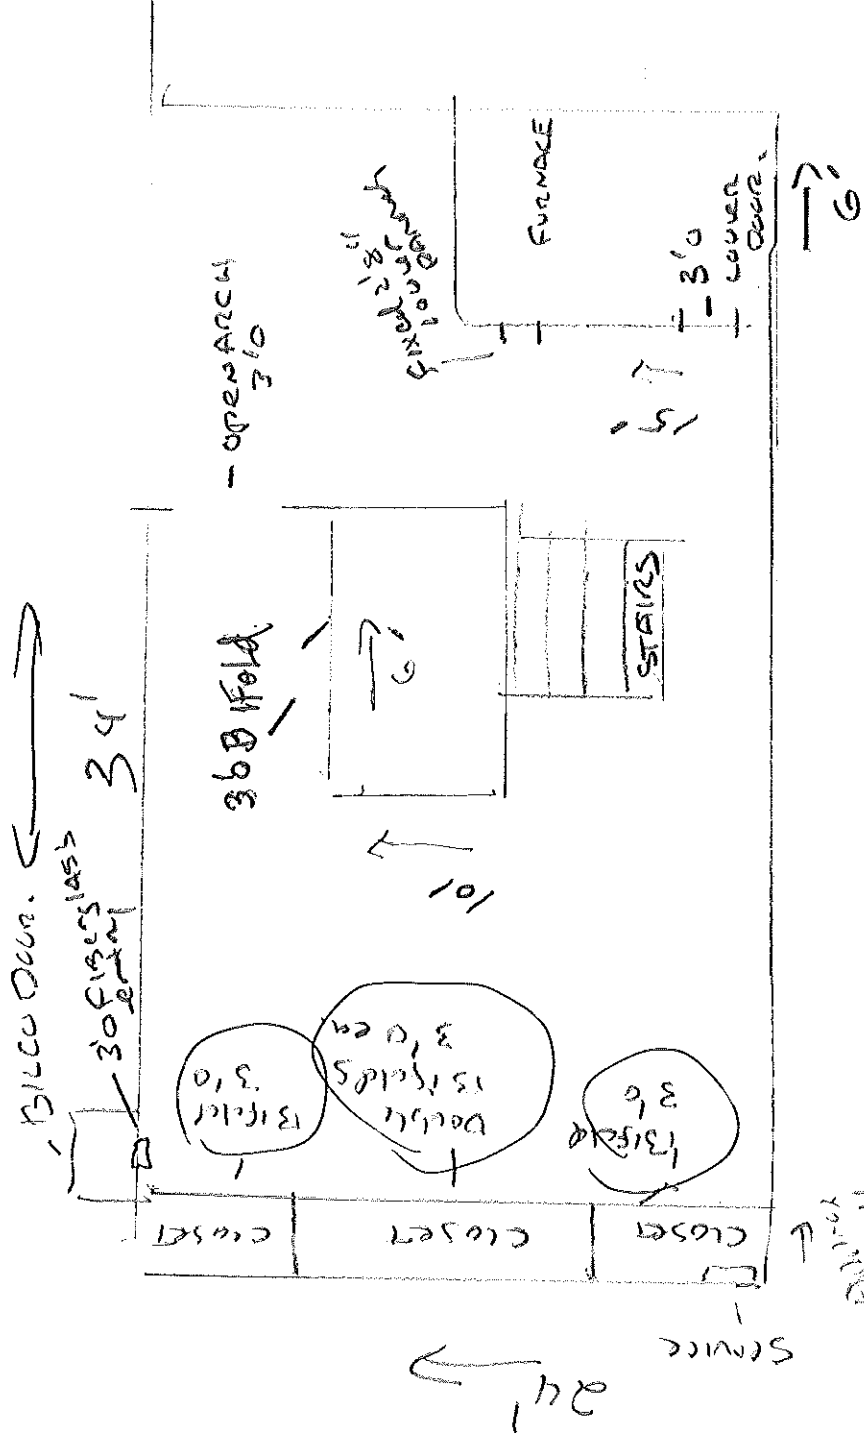 BILCO DOOR.
34'
30 FIBERGLASS
entry
- OPEN ARCH
3'0
36 BIFold
6'
Fixed 2'8"
louver
FURNACE
- 3'0
LOUVER
DOOR.
6'
15'
STAIRS
10'
Bifold
3'0
Double
Bifolds
3'0 ea
Bifold
3'0
CLOSET
CLOSET
CLOSET
SERVICE
24'